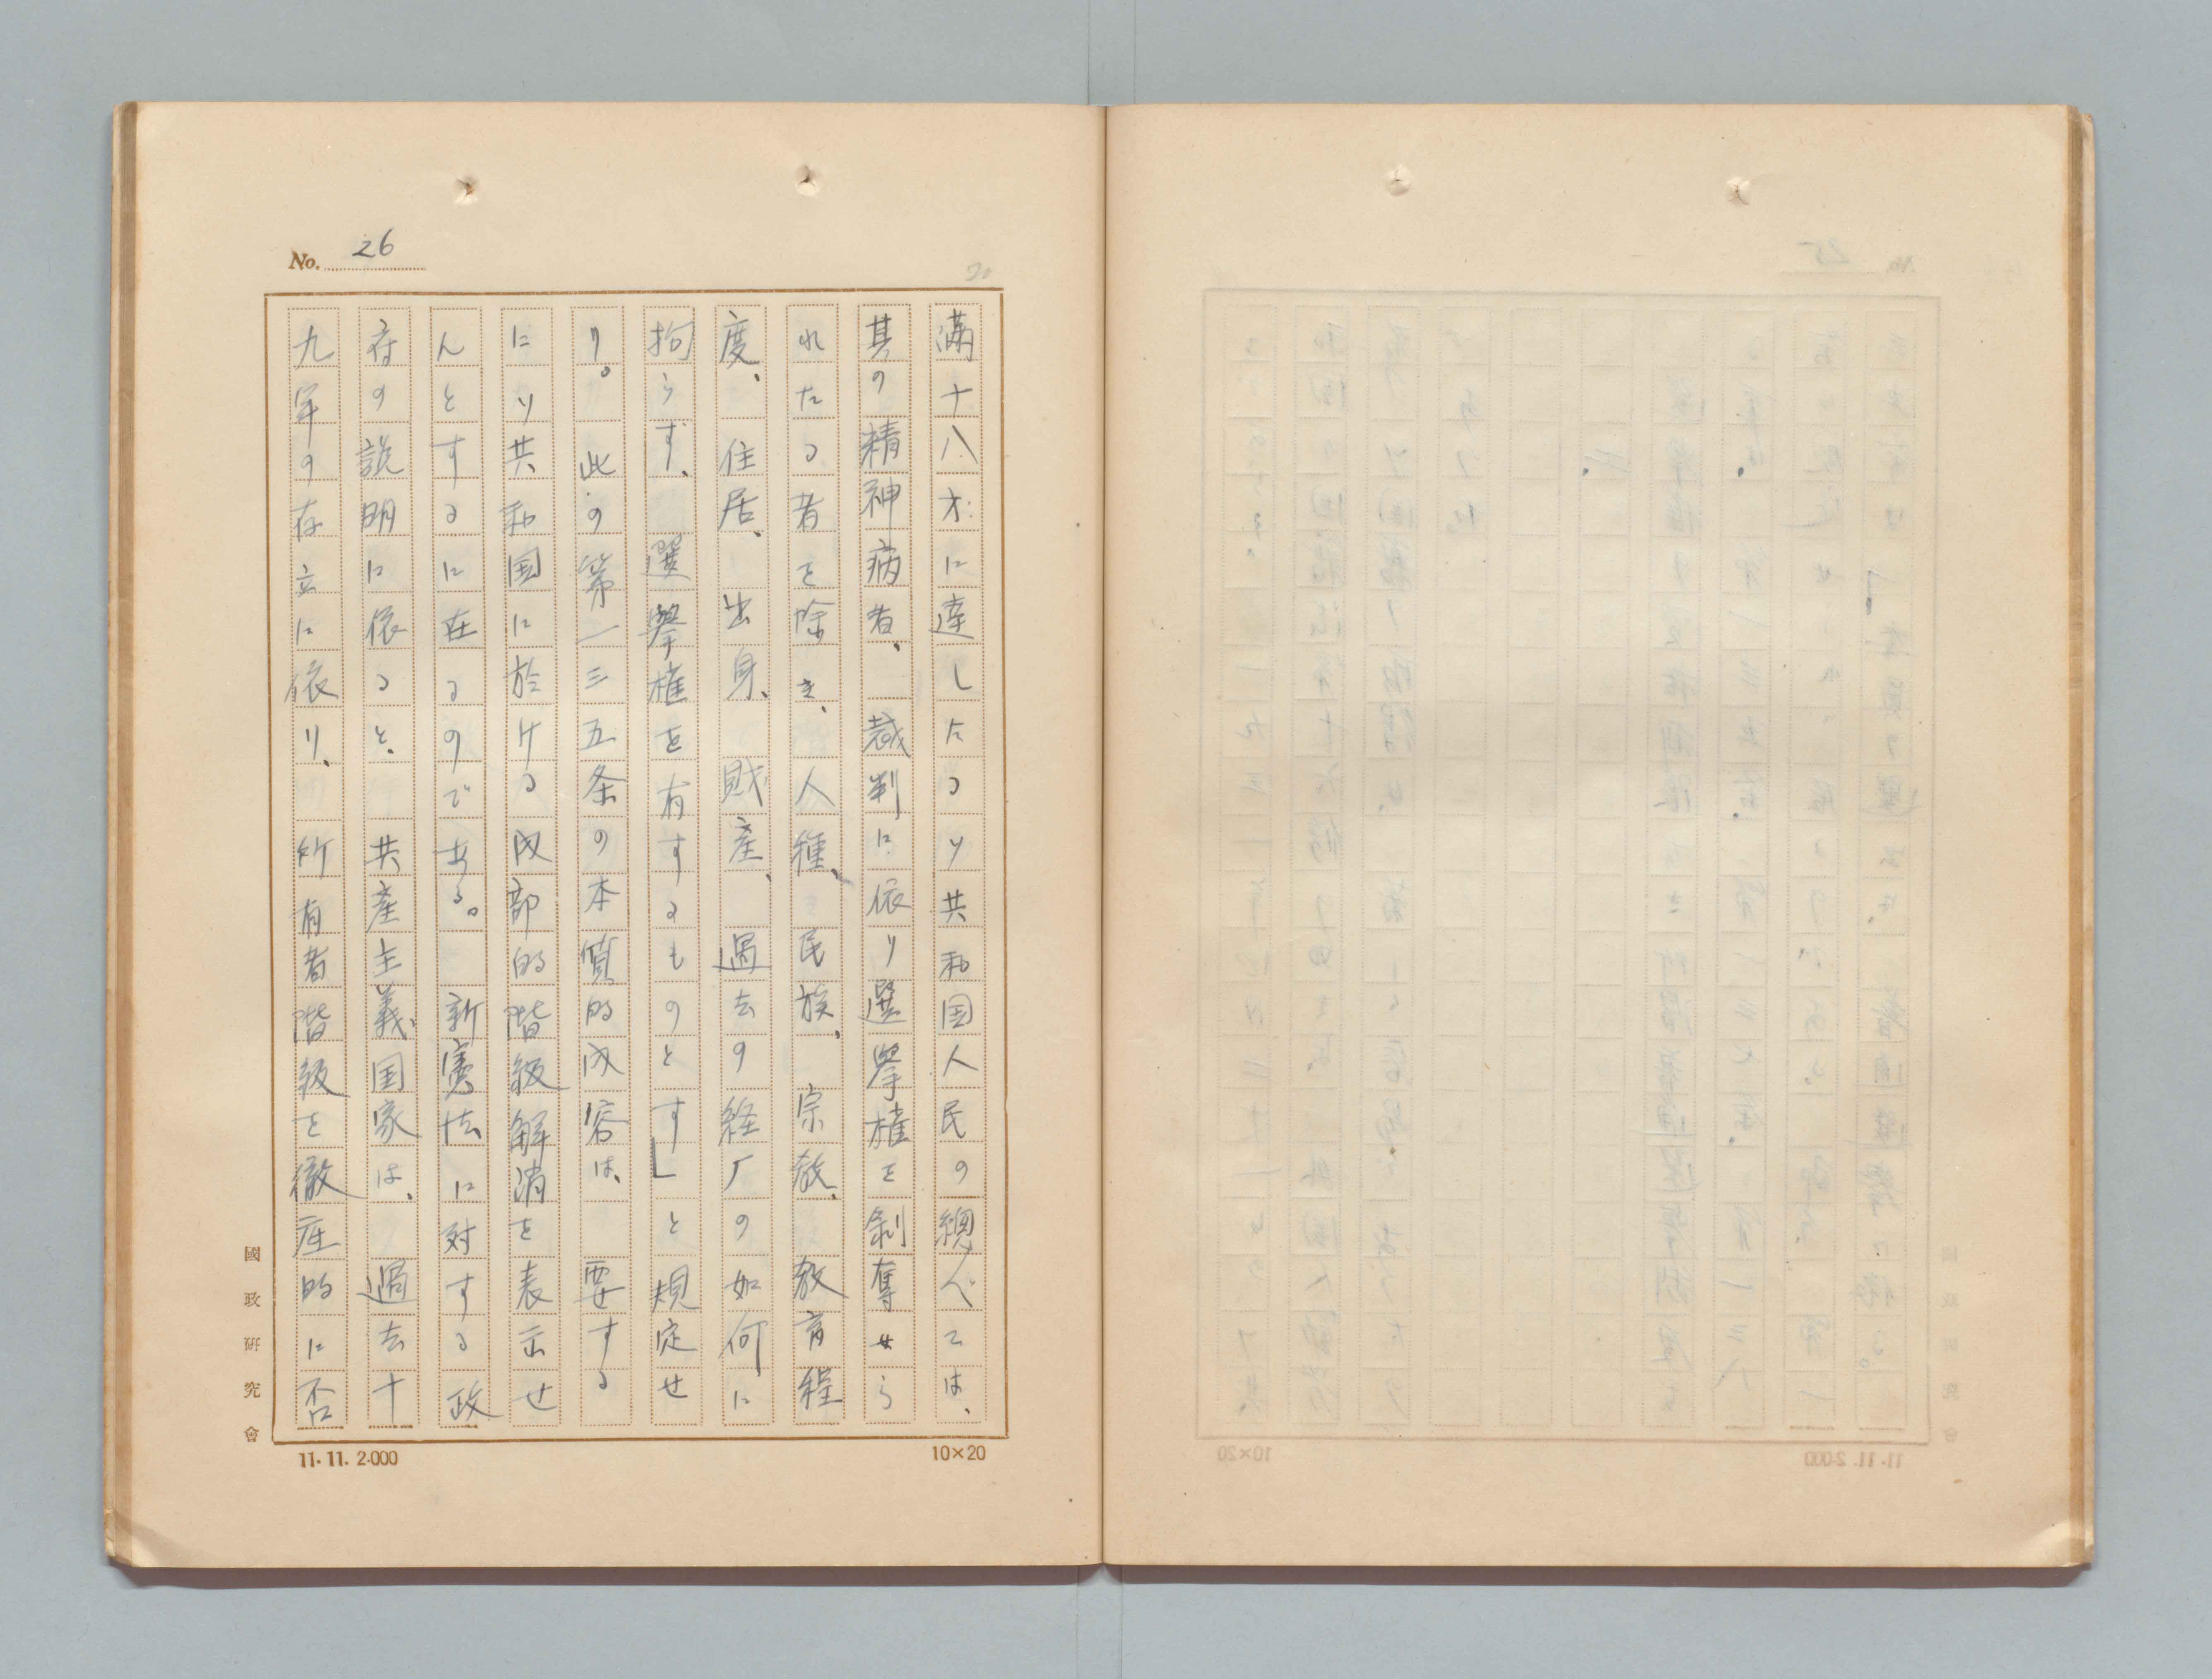 No. 26
20
満十八才に達したるソ共和国人民の総べては、
其の精神病者、裁判に依り選挙権を剝奪せら
れたる者を除き、人種、民族、宗教、教育程
度、住居、出身、財産、過去の経厂の如何に
拘らず、選挙権を有するものとす」と規定せ
り。此の第一三五条の本質的内容は、要する
にソ共和国に於ける内部的階級解消を表示せ
んとするに在るのである。新憲法に対する政
府の説明に依ると、共産主義国家は、過去十
九年の存立に依り、所有者階級を徹底的に否
國政研究會
11.11. 2.000
10×20